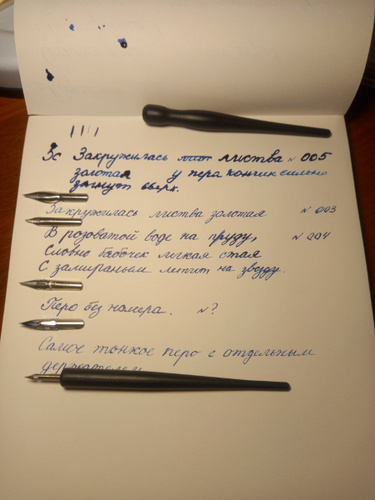 Зс Закружилась лист листва № 005
золотая у пера кончик сильно
загнут вверх.
Закружилась листва золотая № 003
В розоватой воде на пруду, № 204
Словно бабочек легкая стая
С замираньем летит на звезду.
Перо без номера. №?
Самое тонкое перо с отдельным
держателем